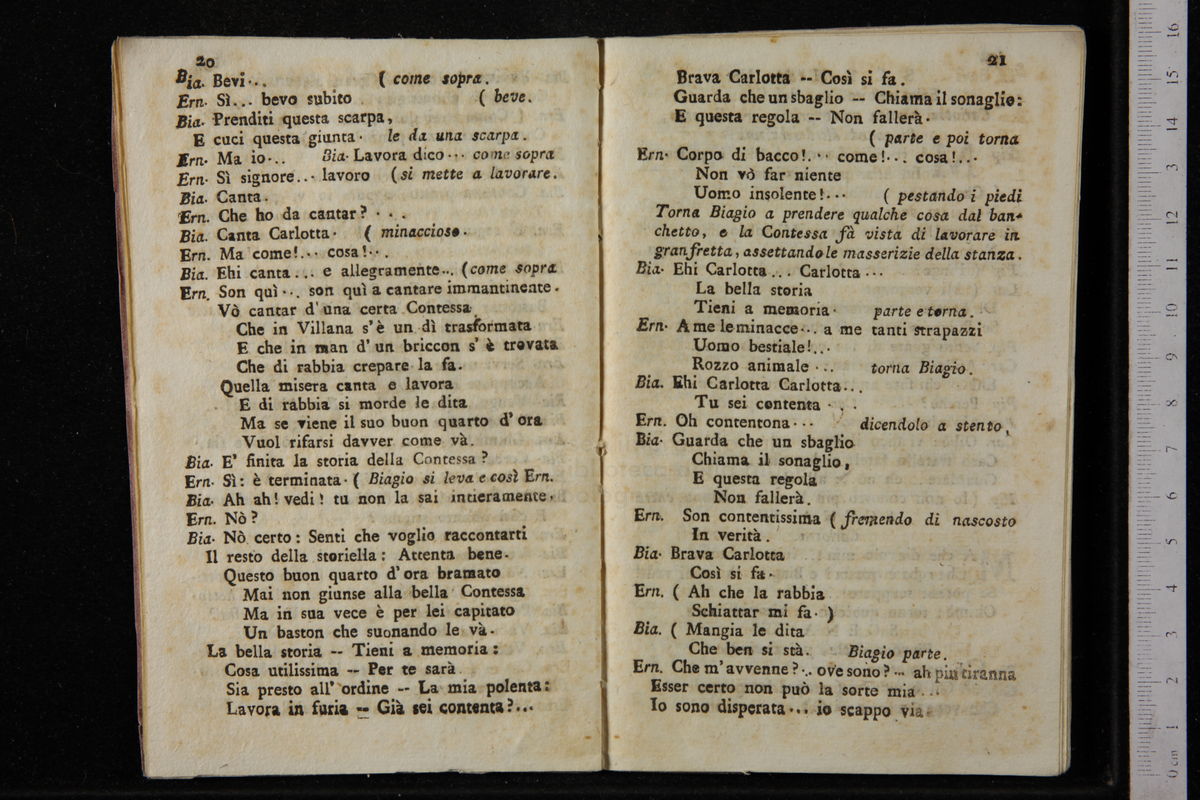 20
Bia. Bevi... ( come sopra.
Ern. Sì... bevo subito ( beve.
Bia. Prenditi questa scarpa,
E cuci questa giunta. le da una scarpa.
Ern. Ma io... Bia. Lavora dico... come sopra
Ern. Sì signore... lavoro (si mette a lavorare.
Bia. Canta.
Ern. Che ho da cantar? ...
Bia. Canta Carlotta. ( minaccioso.
Ern. Ma come!... cosa!...
Bia. Ehi canta... e allegramente... (come sopra
Ern. Son quì... son quì a cantare immantinente.
Vò cantar d'una certa Contessa,
Che in Villana s'è un dì trasformata
E che in man d'un briccon s'è trovata
Che di rabbia crepare la fa.
Quella misera canta e lavora
E di rabbia si morde le dita
Ma se viene il suo buon quarto d'ora
Vuol rifarsi davver come và.
Bia. E' finita la storia della Contessa?
Ern. Sì: è terminata. ( Biagio si leva e così Ern.
Bia. Ah ah! vedi! tu non la sai intieramente.
Ern. Nò?
Bia. Nò certo: Senti che voglio raccontarti
Il resto della storiella: Attenta bene.
Questo buon quarto d'ora bramato
Mai non giunse alla bella Contessa
Ma in sua vece è per lei capitato
Un baston che suonando le và.
La bella storia -- Tieni a memoria:
Cosa utilissima -- Per te sarà
Sia presto all'ordine -- La mia polenta:
Lavora in furia -- Già sei contenta?...
21
Brava Carlotta -- Così si fa.
Guarda che un sbaglio -- Chiama il sonaglio:
E questa regola -- Non fallerà.
( parte e poi torna
Ern. Corpo di bacco!... come!... cosa!...
Non vò far niente
Uomo insolente!... ( pestando i piedi
Torna Biagio a prendere qualche cosa dal ban-
chetto, e la Contessa fà vista di lavorare in
gran fretta, assettando le masserizie della stanza.
Bia. Ehi Carlotta... Carlotta...
La bella storia
Tieni a memoria. parte e torna.
Ern. A me le minacce... a me tanti strapazzi
Uomo bestiale!...
Rozzo animale... torna Biagio.
Bia. Ehi Carlotta Carlotta...
Tu sei contenta...
Ern. Oh contentona... dicendolo a stento,
Bia. Guarda che un sbaglio
Chiama il sonaglio,
E questa regola
Non fallerà.
Ern. Son contentissima ( fremendo di nascosto
In verità.
Bia. Brava Carlotta
Così si fa.
Ern. ( Ah che la rabbia
Schiattar mi fa. )
Bia. ( Mangia le dita
Che ben si stà. Biagio parte.
Ern. Che m'avvenne?... ove sono?... ah più tiranna
Esser certo non può la sorte mia...
Io sono disperata... io scappo via.
0 cm 1 2 3 4 5 6 7 8 9 10 11 12 13 14 15 16